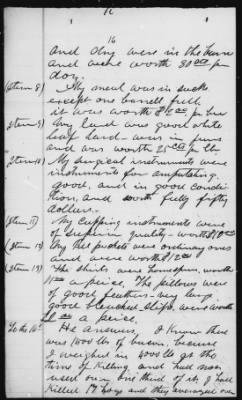 16
16
and dry were in the barn
and were worth 80 cts per
doz.
(Item 8) My meal was in sacks
except one barrell full
it was worth
(Item 9) My lard was good white
leaf lard was in
and was worth 25 cts pr lb
(Item 10) My surgical instruments were
instruments for amputating.
good, and in good condi-
tion, and worth fully fifty
dollars.
(Item 11) My cupping instruments were
of superior quality worth
(Item 12) My were ordinary ones
and were worth
(Item 13) The shirts were homespun, worth
a peice. The pillows were
of good feathers very large
good bleached slips, were worth
a peice.
To the 10" He answers, I know there
was 1000 lbs of bacon, because
I weighed in 4000 lbs at the
time of killing and had not
used over one third of it. I had
killed hogs and they averaged over